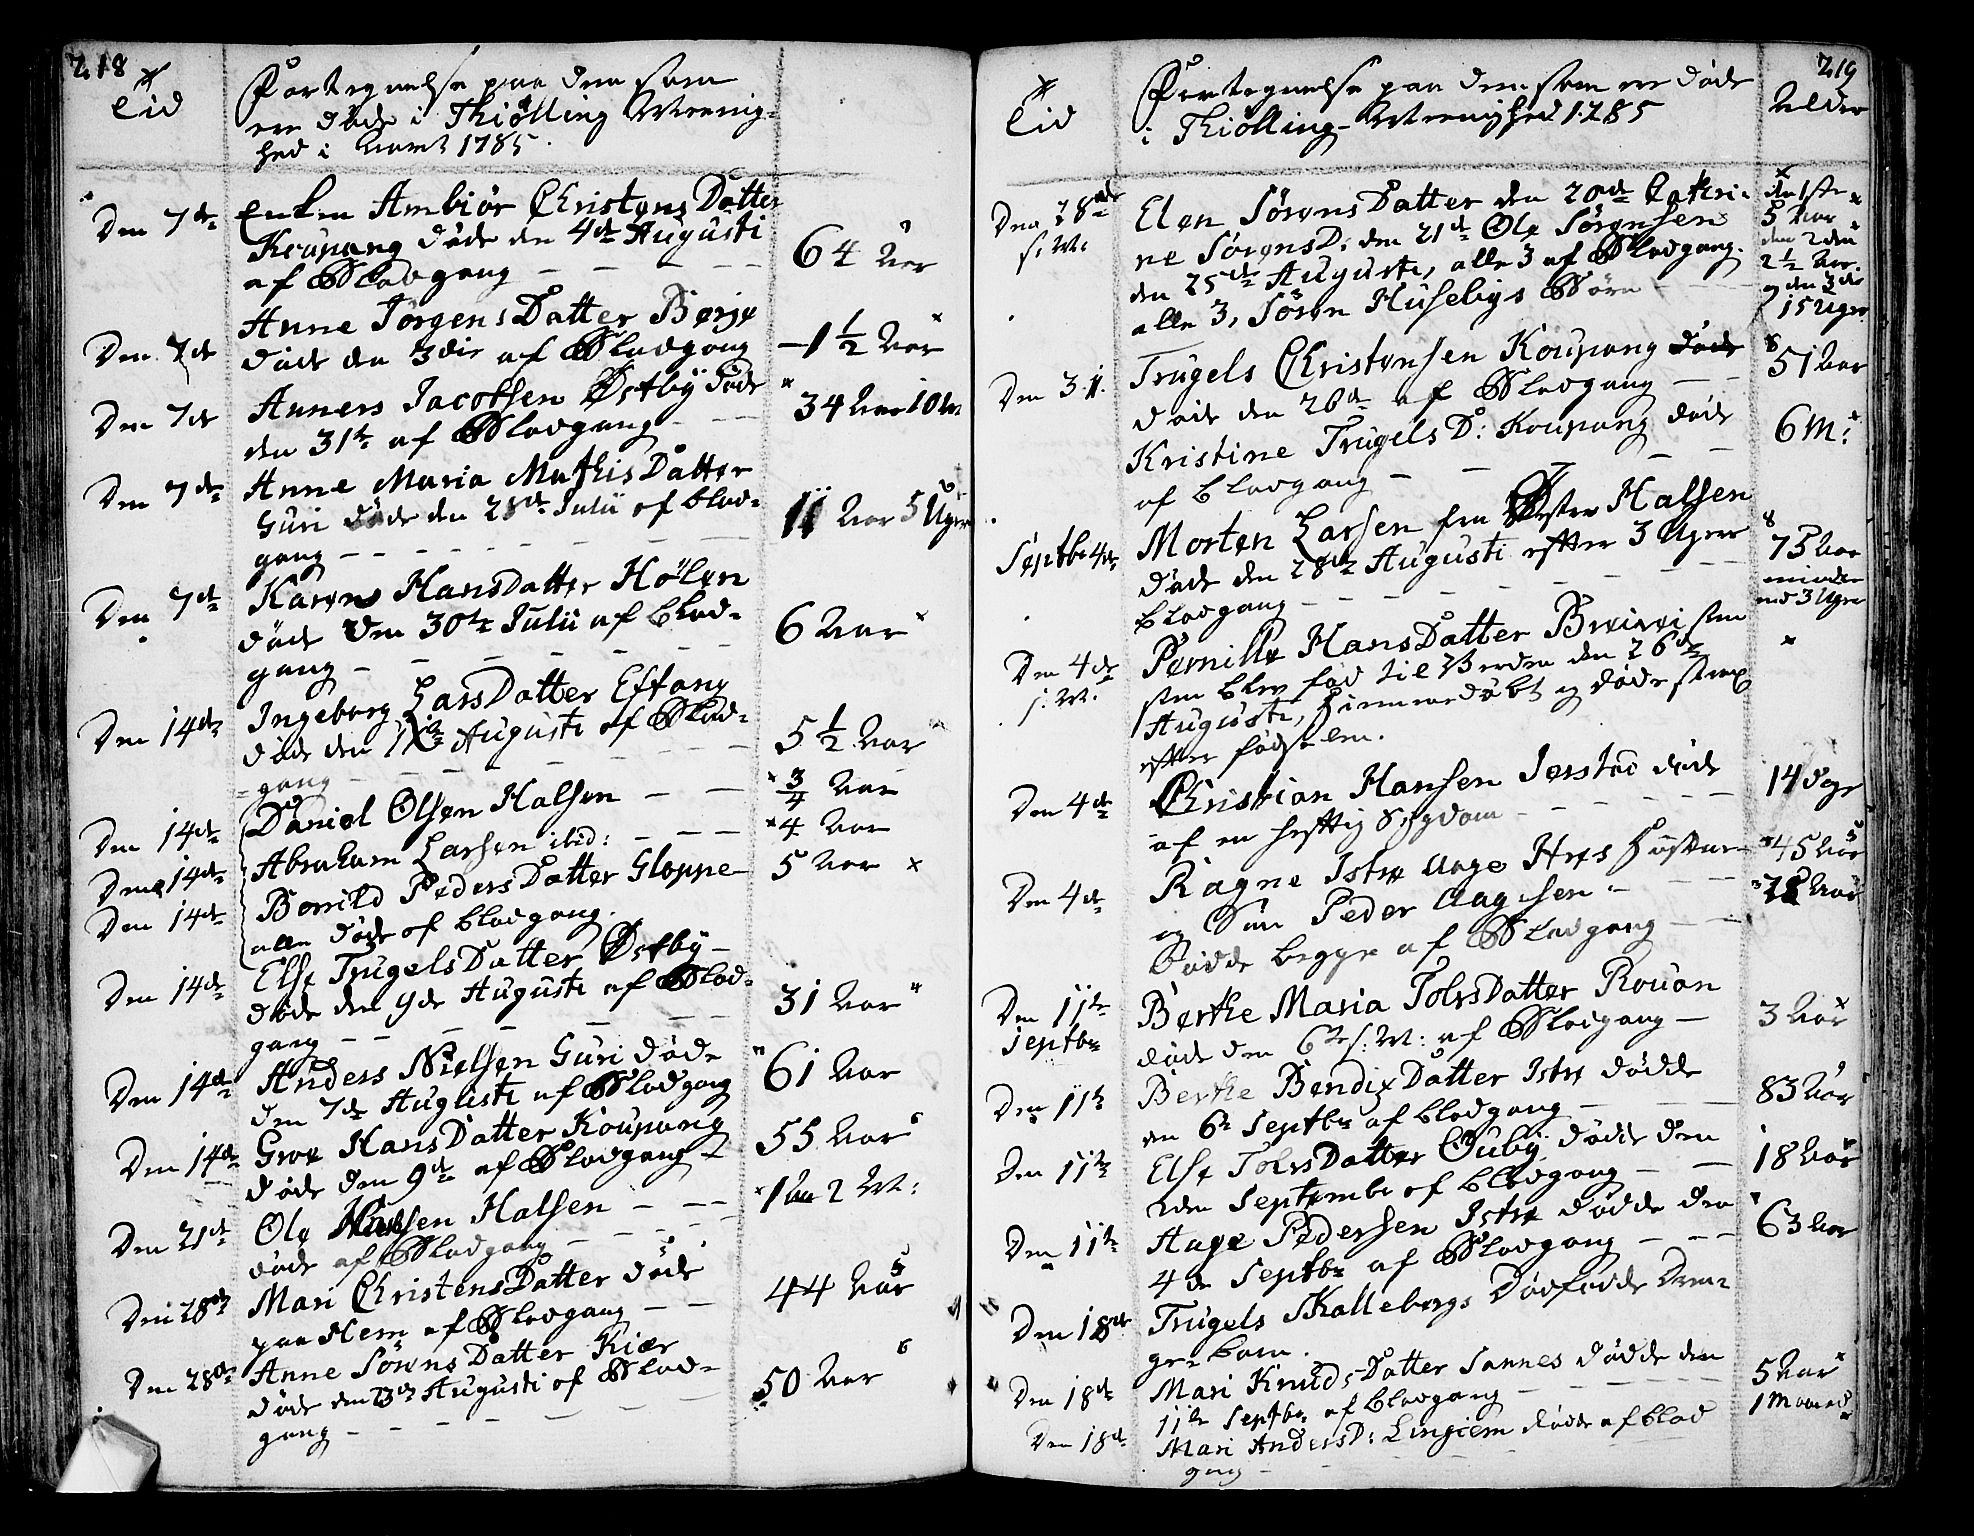 218
Tid
Fortegnelse paa dem som
ere døde i Thiølling Meenig-
hed i Aaret 1785.
Den 7de
Enken Ambiør Christens Datter
Koupang døde den 4de Augusti
af Blodgang – – – –
64 Aar
Den 7de
Anne Jørgens Datter Børje
døde den 3die af Blodgang
1 1/2 Aar
Den 7de
Anners Jacobsen Østbÿ døde
den 31te af Blodgang – –
34 Aar 10
Den 7de
Anne Maria Mathis Datter
Guri døde den 28de Julii af blod-
gang – – – – – –
11 Aar 5 Uger
Den 7de
Karen Hansdatter Hölen
døde den 30te Julii af blod-
gang – – – – –
6 Aar
Den 14de
Ingeborg LarsDatter Eftang
døde den Augusti af Blod-
gang – – – –
5 1/2 Aar
Den 14de
Daniel Olsen Halsen – –
3/4 Aar
Den 14de
Abraham Larsen ibid: – – –
4 Aar
Den 14de
Bonild Peders Datter Gloppe
alle døde af blodgang.
5 Aar
Den 14de
Else Trugels Datter Østbÿ –
døde den 9de Augusti af Blod-
gang – – – – –
31 Aar
Den 14de
Anders Nielsen Guri døde
den 7de Augusti af Blodgang
61 Aar
Den 14de
Groe Hans Datter Koupang
døde den 9de af Blodgang –
55 Aar
Den 21de
Ole Halsen – – –
døde af Blodgang – – –
1 Aar 2 M:
Den 28de
Mari Christens Datter døde
paa Hem af Blodgang – –
44 Aar
Den 28de
Anne Sörens Datter Kiær
døde den 23de Augusti af Blod-
gang – – – – –
50 Aar
219
Tid
Fortegnelse paa dem som ere døde
i Thiølling Meenighed 1785
Alder
Den 28de
s. M.
Elen Sørens Datter den 20de Cathri-
ne Sørens D: den 21de Ole Sørensen
den 25de Augusti, alle 3 af Blodgang.
alle 3, Sörn Husebÿs Børn – – –
den 1ste
5 Aar
den 2den
2 1/2 Aar
og den 3die
15 Uger
Den 31.
Trugels Christensen Koupang døde
døde den 26de af Blodgang – –
51 Aar
Kristine Trugels D: Koupang døde
af blodgang – – – –
6 M:
Septbr 4de
Morten Larsen fra Øster Halsen
døde den 28de Augusti efter 3 Ugers
blodgang – – – – – –
75 Aar
mindre
end 3 Uger
Den 4de
s. M.
Pernille Hans Datter som
som blev fød til Verden den 26de
Augusti, hiemmedøbt og døde strax
efter fødselen.
Den 4de
Christian Hansen Jersted døde
af en heftig Sygdom – – – –
14 dage
Den 4de
Ragne Istre Aage Hustrue
og Søn Peder Aagesen – – –
Dødde begge af Blodgang – –
45 Aar
Aar
Den 11te
Septbr
Berthe Maria Tolvs Datter Rouan
døde den 6te s: M: af Blodgang –
3 Aar
Den 11te
Berthe Bendix Datter Istre dødde
den 6te Septbr af blodgang – –
83 Aar
Den 11te
Else Tolvs Datter Oubÿ dødde den
2den Septembr af blodgang – –
18 Aar
Den 11te
Aage Pedersen Istre dødde den
4de Septbr af Blodgang – – –
63 Aar
Den 18de
Trugels Skallebergs Dødfødde Dren-
ge-barn.
Den 18de
Mari Knuds Datter Sannes dødde den
11te Septbr af blodgang – – –
5 Aar
Den 18de
Mari Anders D: Lingiem dødde af blod
gang – – –
1 Maaned